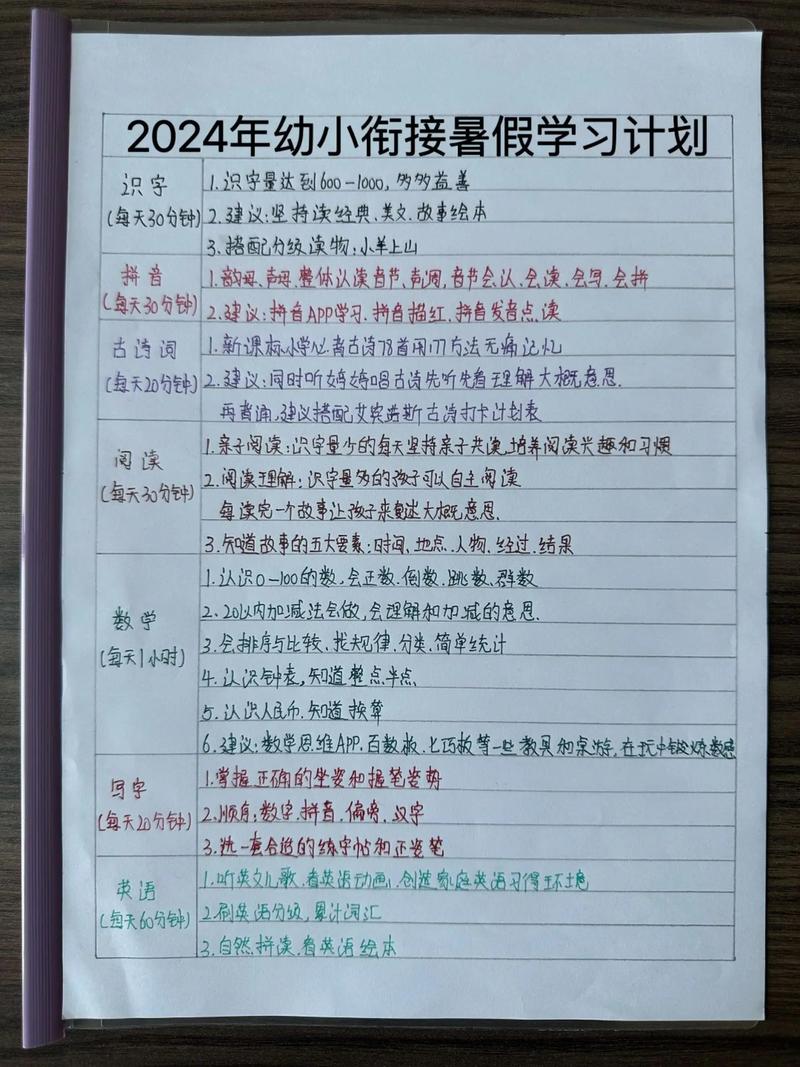 2024年幼小衔接暑假学习计划
识字
(每天30分钟)
1.识字量达到600-1000,多多益善
2.建议:坚持读经典、美文、故事绘本
3.搭配分级读物:小羊上山
拼音
(每天30分钟)
1.韵母、声母、整体认读音节、声调,音节会认、会读、会写、会拼
2.建议:拼音APP学习、拼音描红、拼音发音点读
古诗词
(每天20分钟)
1.新课标小学必背古诗78首用177方法无痛记忆
2.建议:同时听婷婷唱古诗先听先看理解大概意思.
再背诵,建议搭配艾宾诺斯古诗打卡计划表
阅读
(每天30分钟)
1.亲子阅读:识字量少的每天坚持亲子共读,培养阅读兴趣和习惯
2.阅读理解:识字量多的孩子可以自主阅读
每读完一个故事让孩子来复述大概意思.
3.知道故事的五大要素:时间、地点、人物、经过、结果
数学
(每天1小时)
1.认识0-100的数,会正数、倒数、跳数、群数
2.20以内加减法会做,会理解和加减的意思.
3.会排序与比较、找规律、分类、简单统计
4.认识钟表,知道整点半点
5.认识人民币、知道换算
6.建议:数学思维APP、百数板、七巧板等一些教具和桌游,在玩中锻炼数感
写字
(每天20分钟)
1.掌握正确的坐姿和握笔姿势
2.顺序:数字、拼音、偏旁、汉字
3.选一套合适的练字帖和正姿笔
英语
(每天60分钟)
1.听英文儿歌、看英语动画,创造家庭英语习得环境
2.刷英语分级,累计词汇
3.自然拼读、看英语绘本